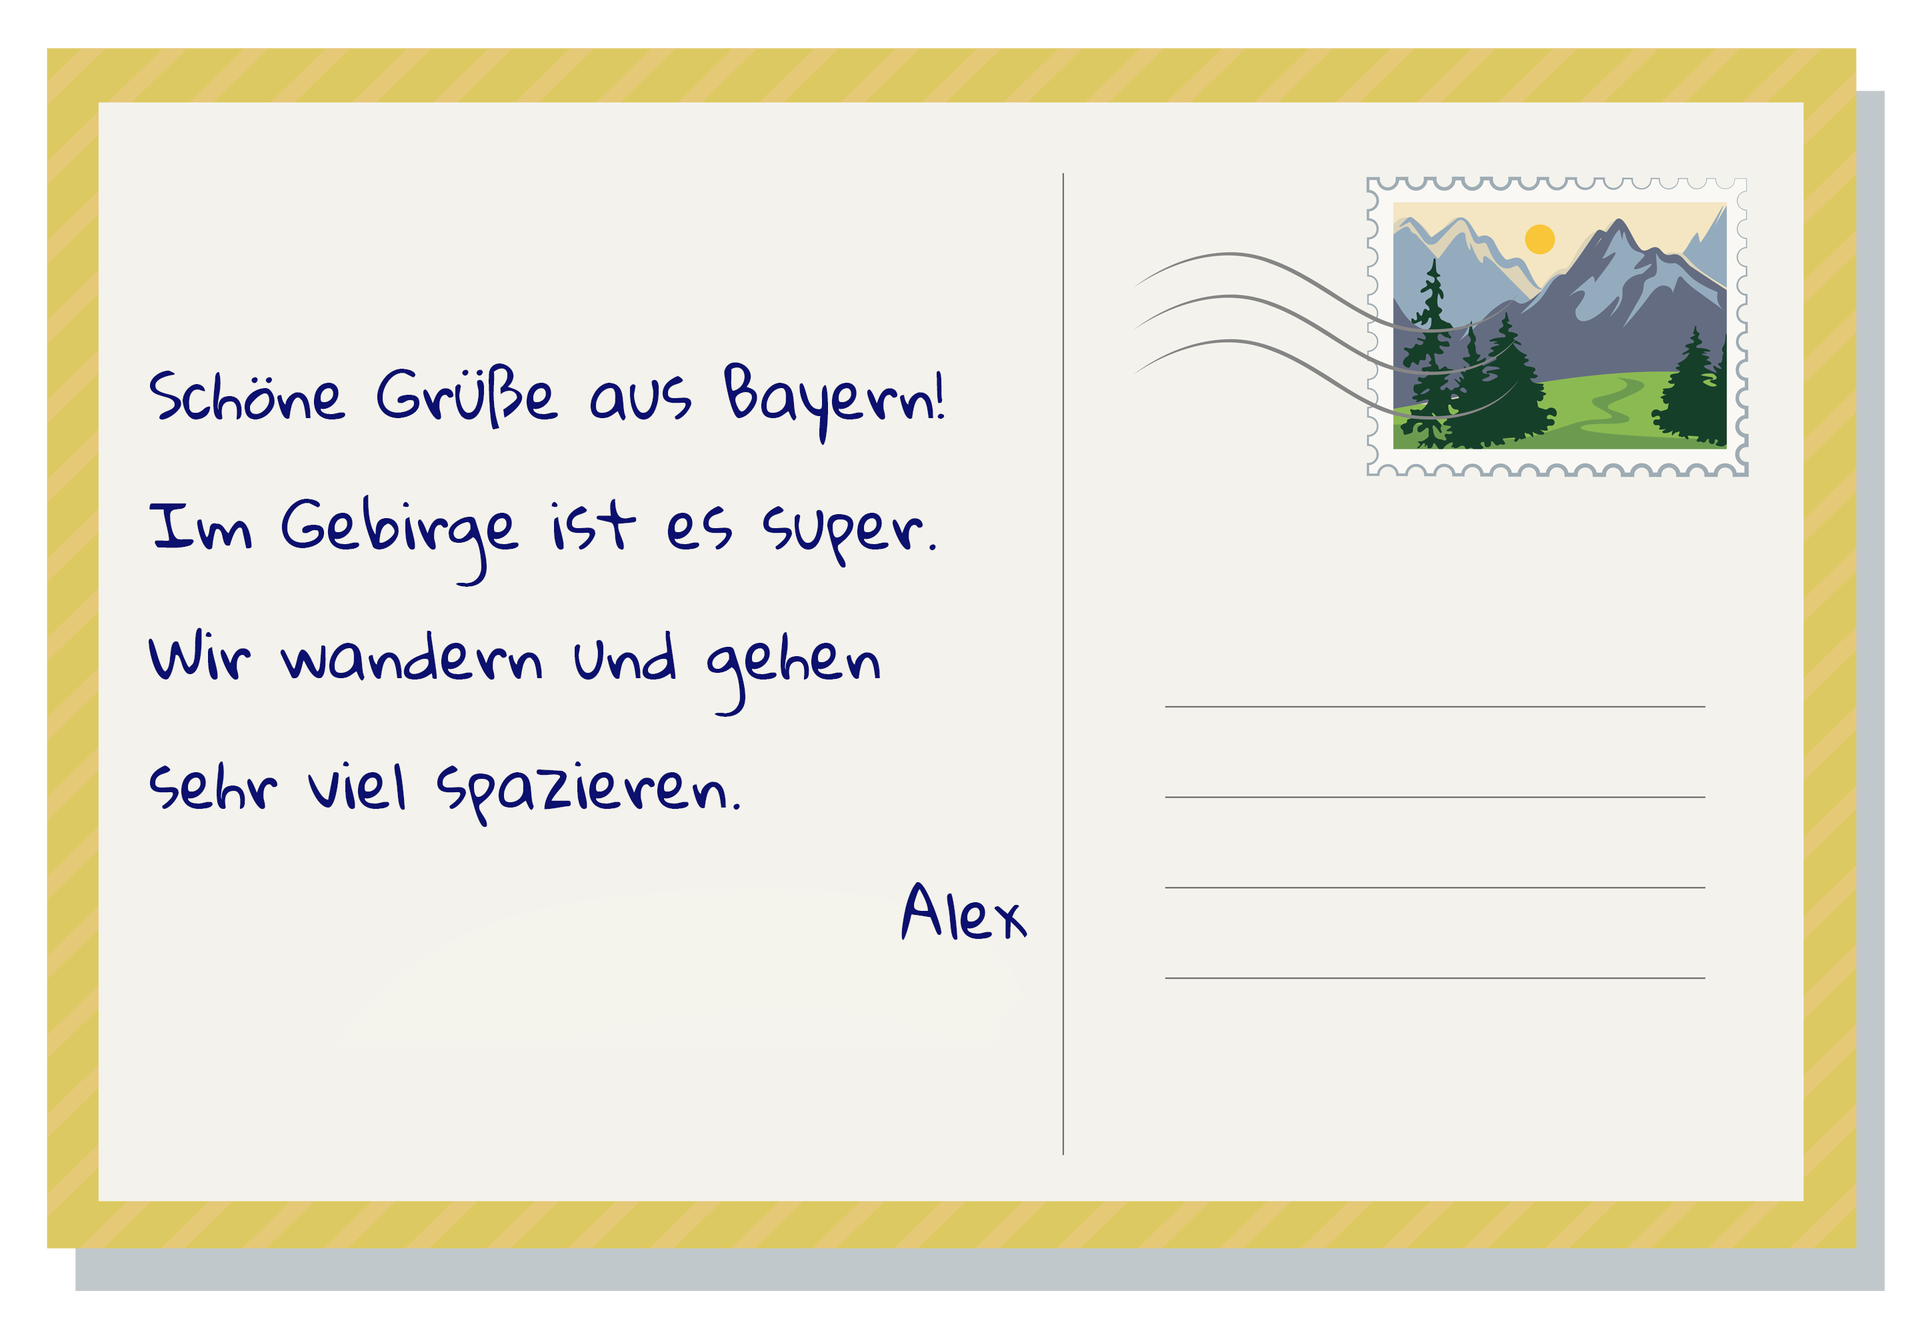 Schöne Grüße aus Bayern!
Im Gebirge ist es super.
Wir wandern und gehen
sehr viel spazieren.
Alex